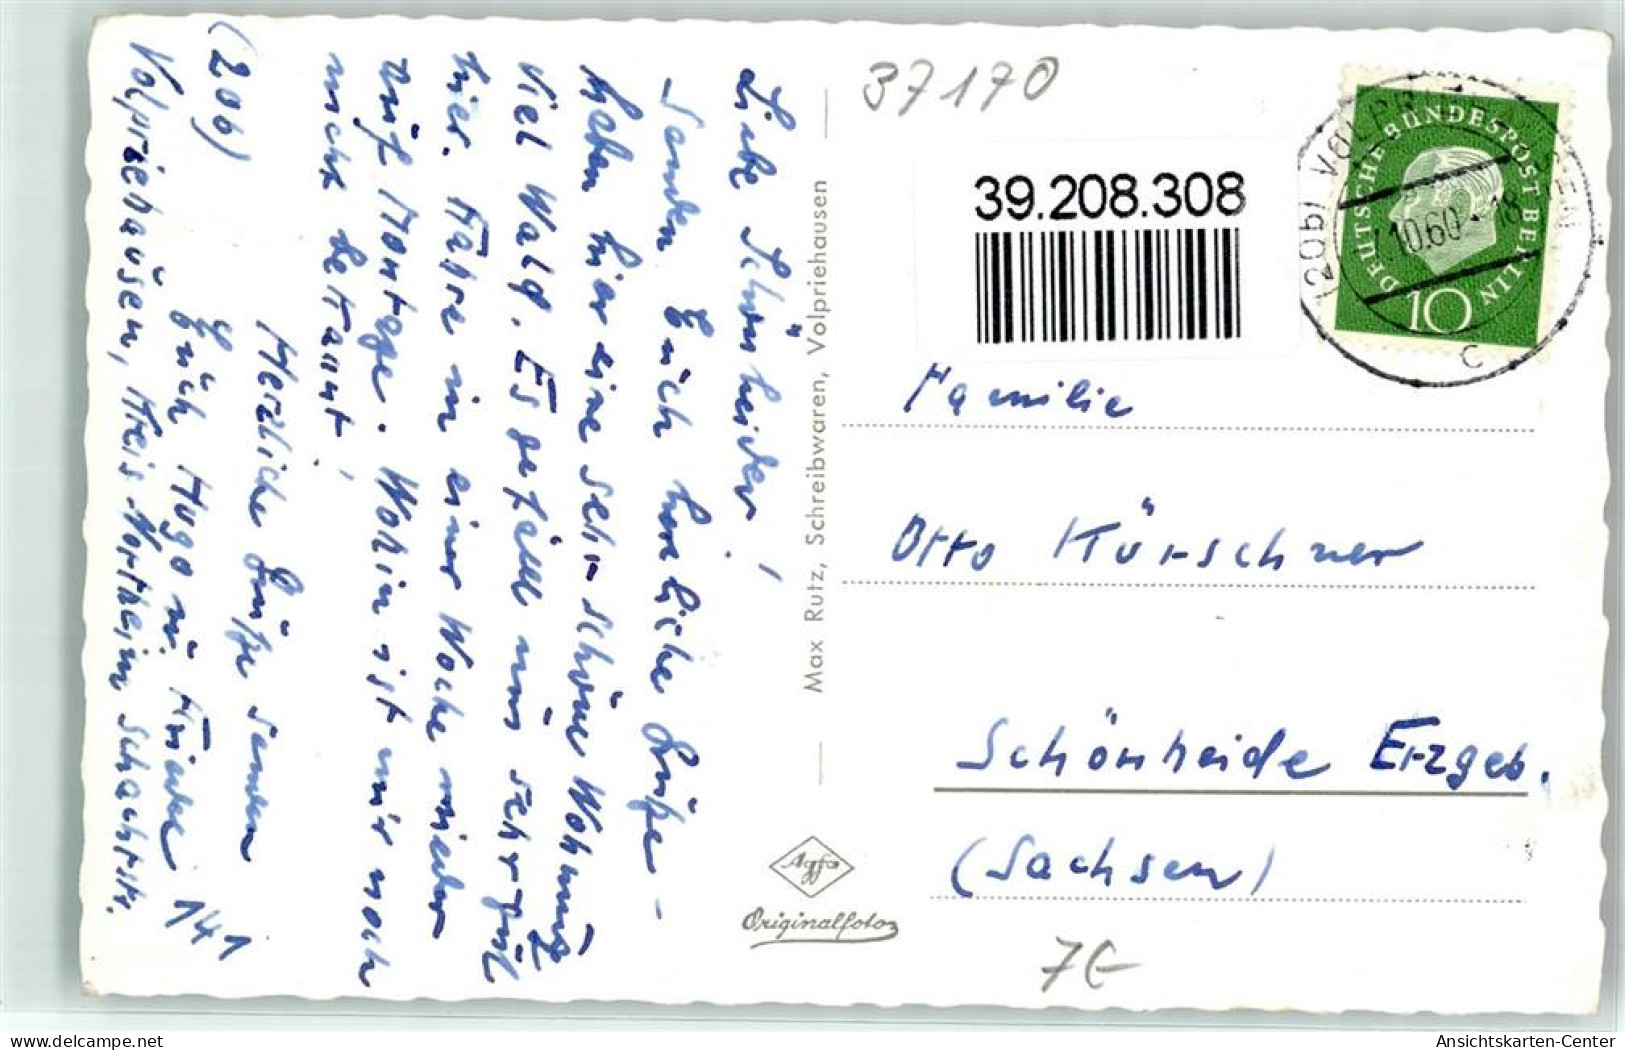 Liebe Schönheider!
senden Euch herzliche Grüße -
haben hier eine sehr schöne Wohnung
viel Wald. Es gefällt uns sehr gut
hier. Fahre in einer Woche wieder
auf Montage. Wohin ist mir noch
nicht bekannt!
Herzliche Grüße senden
Euch Hugo u. Frieda
(20b)
Volpriehausen, Kreis Northeim Schachtstr.
141
Max Rutz, Schreibwaren, Volpriehausen
Agfa
Originalfoto
37170
39.208.308
(20b) VOLPRIEHAUSEN
10.60-18
c
DEUTSCHE BUNDESPOST BERLIN
10
Familie
Otto Kürschner
Schönheide Erzgeb.
(Sachsen)
7€
oldthing.com
Ansichtskarten-Center